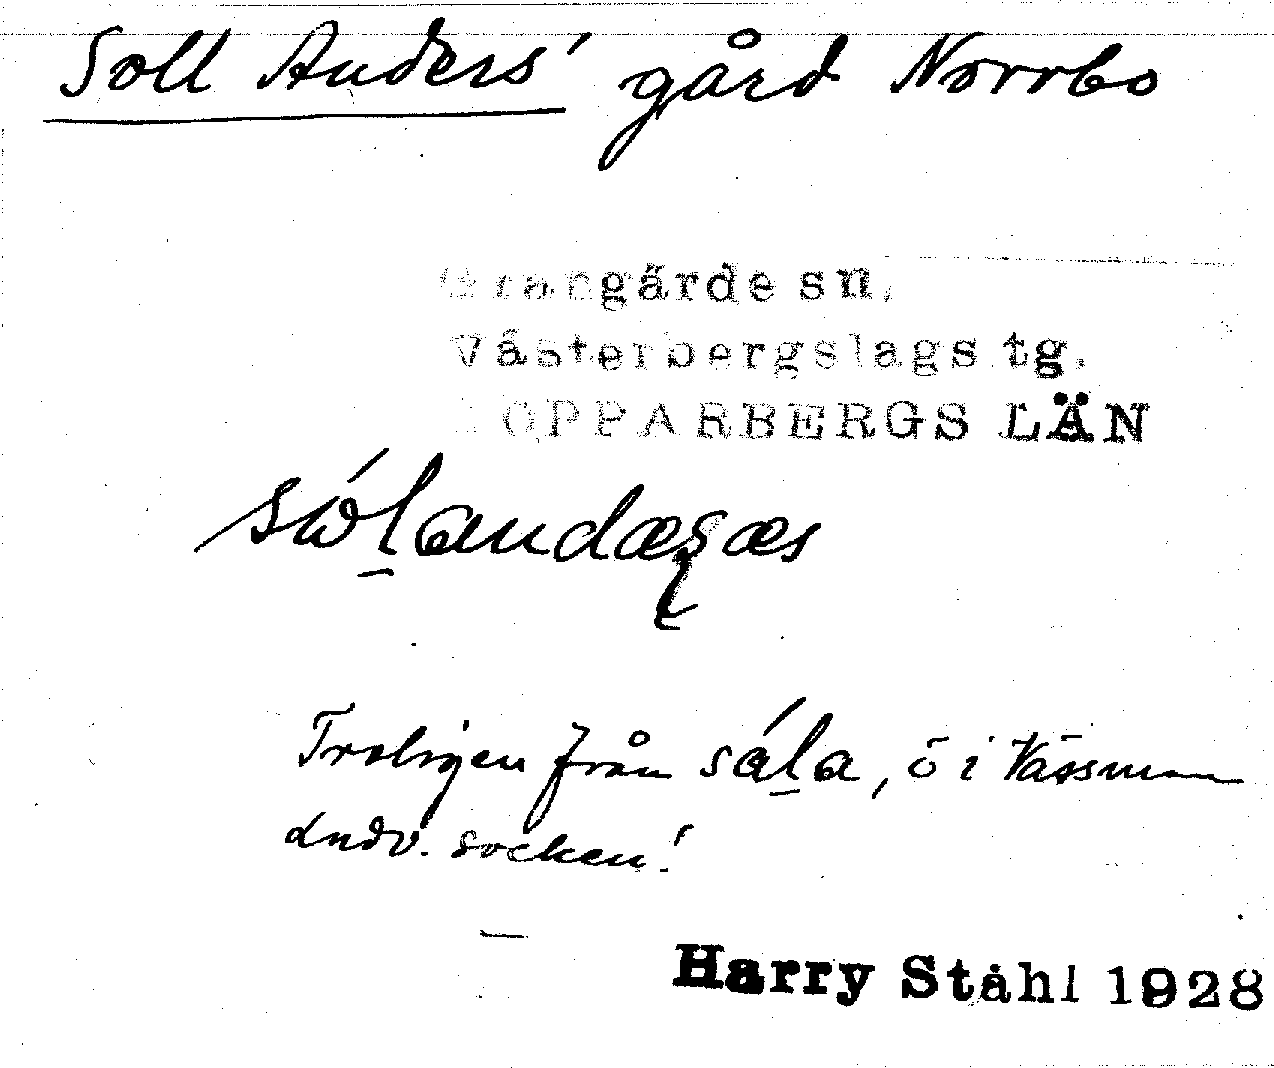 Soll Anders' gård Norrbo
Grangärde sn.
Västerbergslags tg.
KOPPARBERGS LÄN
Troligen från sála, ö i Väsman
Ludv. socken!
Harry Ståhl 1928